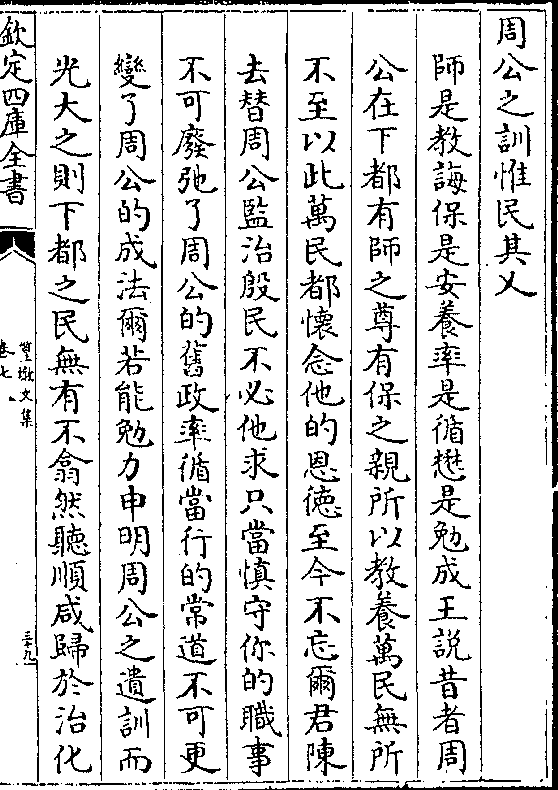 周公之訓惟民其乂
師是教誨保是安養率是循懋是勉成王説昔者周
公在下都有師之尊有保之親所以教養萬民無所
不至以此萬民都懷念他的恩德至今不忘爾君陳
去替周公監治殷民不必他求只當慎守你的職事
不可廢弛了周公的舊政率循當行的常道不可更
變了周公的成法爾若能勉力申明周公之遺訓而
光大之則下都之民無有不翕然聽順咸歸於治化
欽定四庫全書
篁墩文集
卷七
三十九